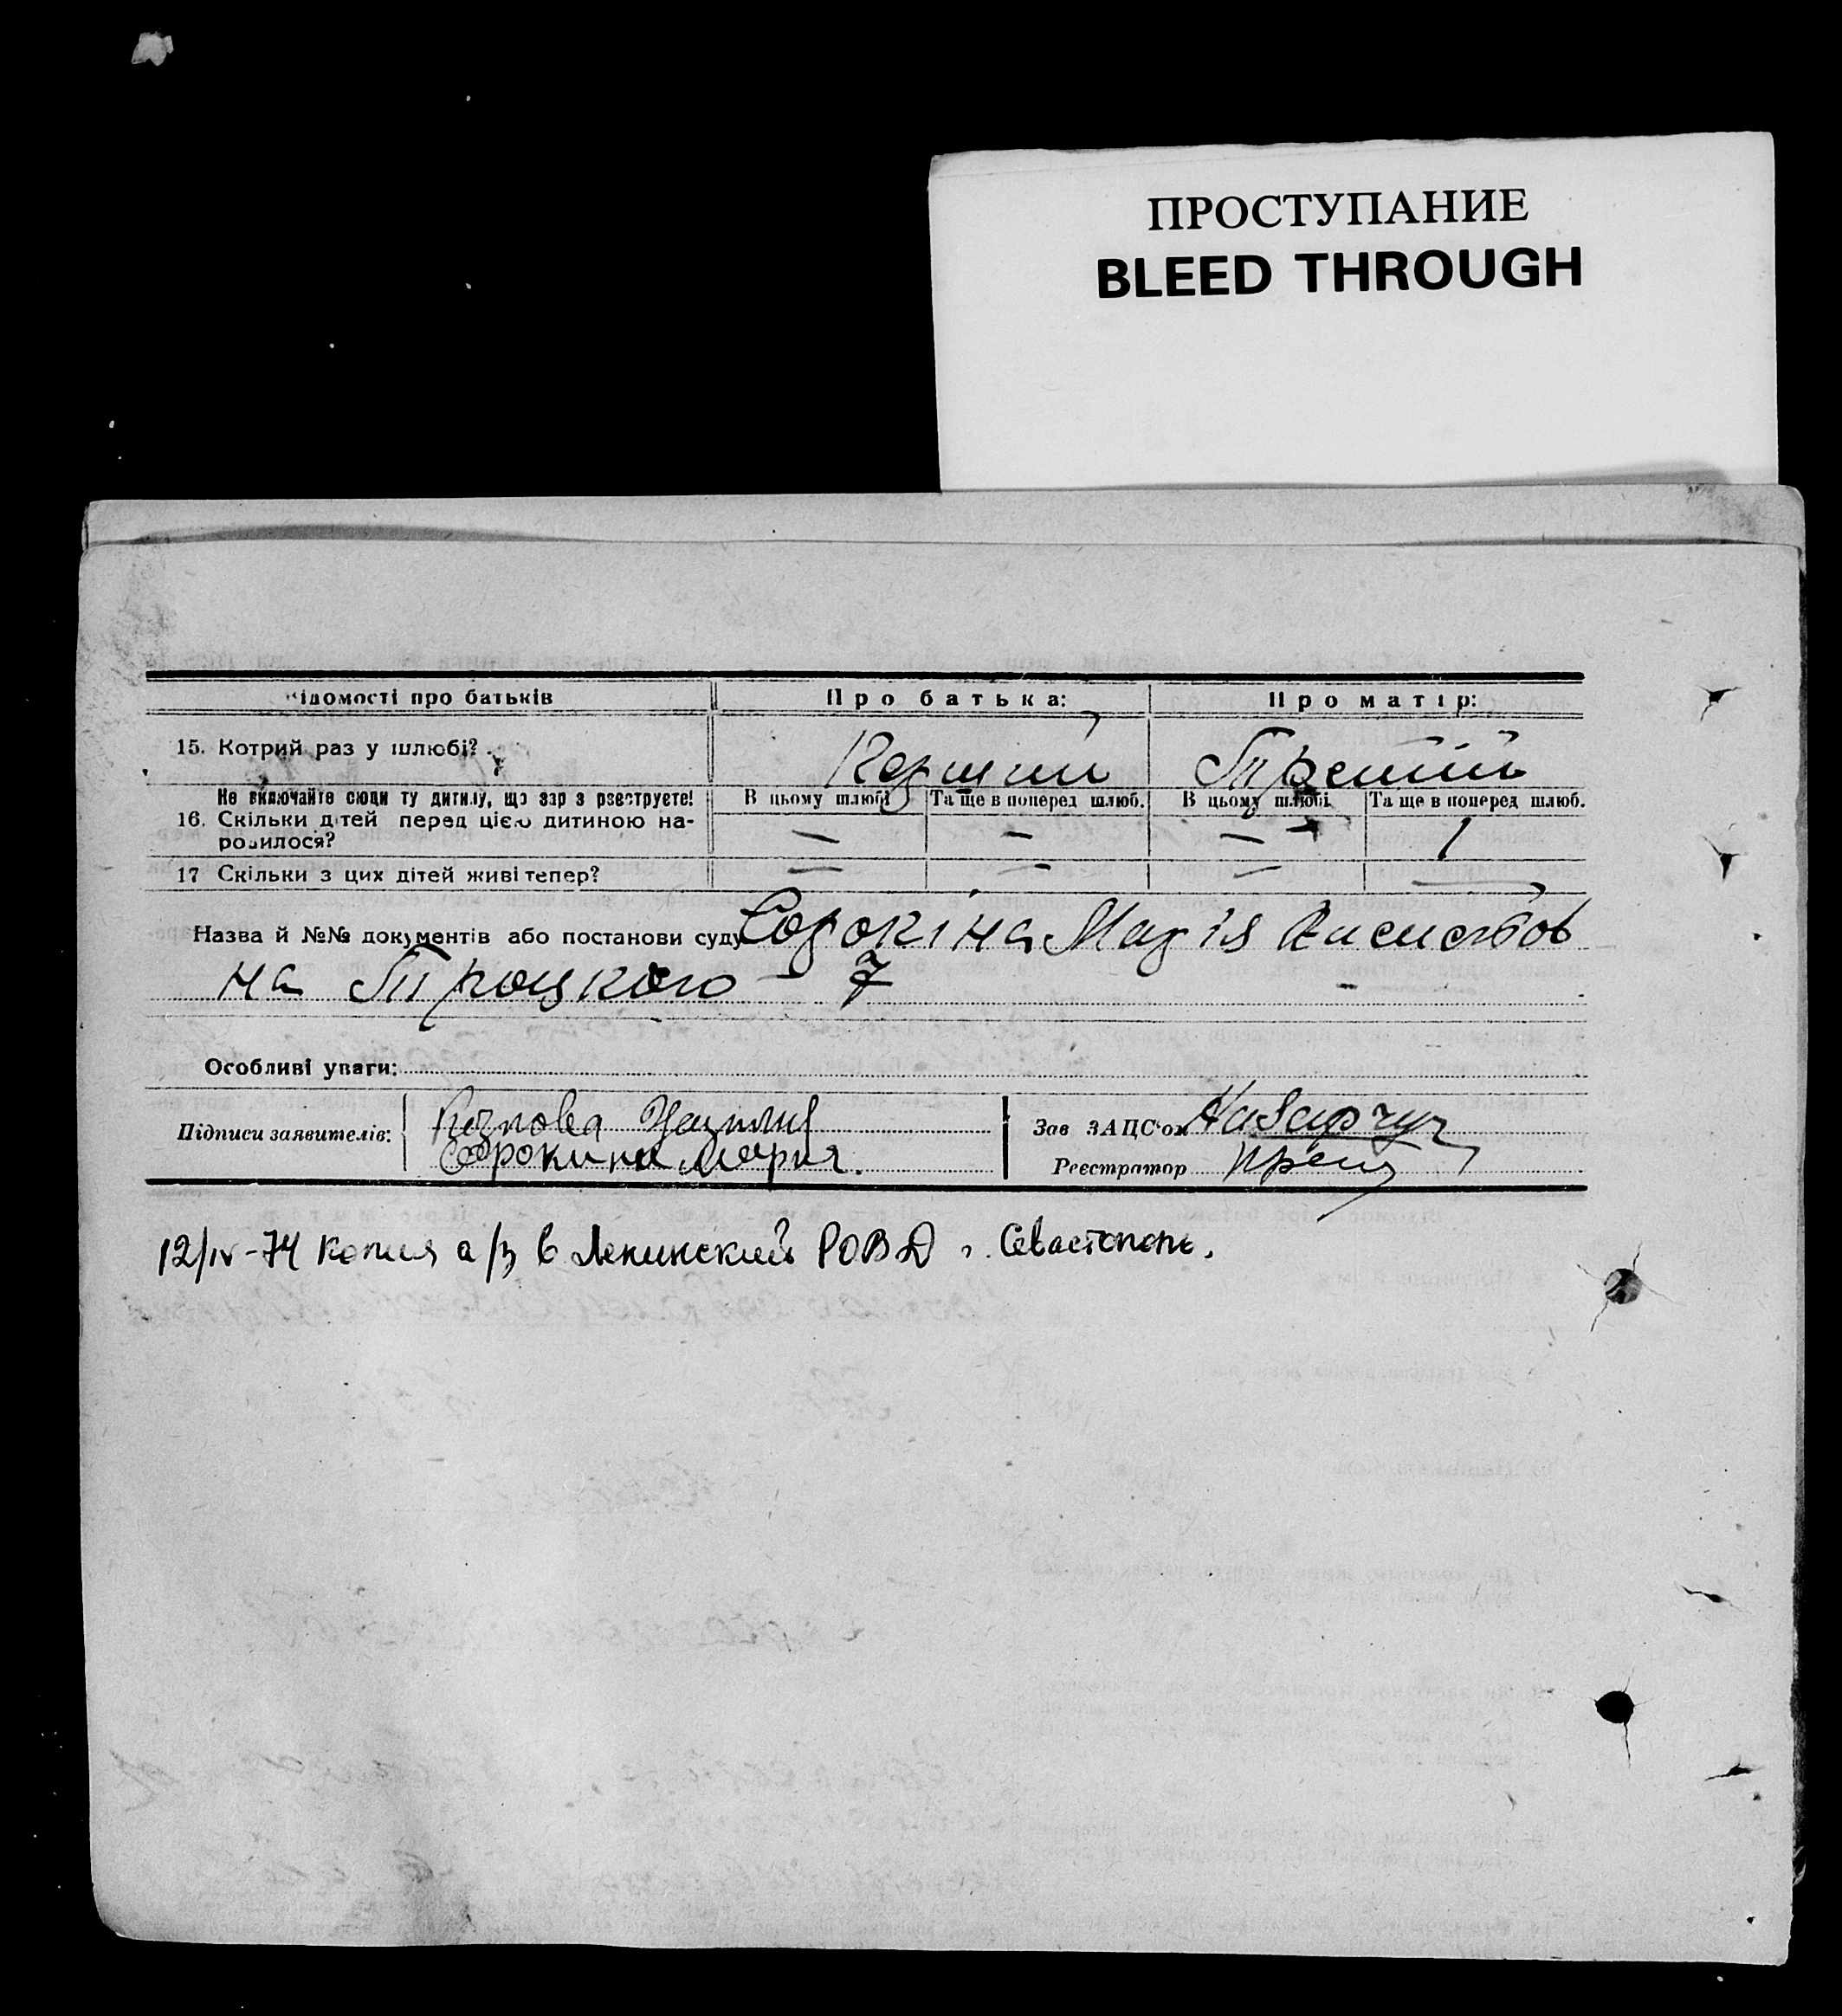 ПРОСТУПАНИЕ
BLEED THROUGH
ідомості про батьків
Про батька:
Про матір:
15. Котрий раз у шлюбі?
Перший
Третій
Не включайте сюди ту дитину, що зар з реєструєте!
16. Скільки дітей перед цією дитиною на-
родилося?
В цьому шлюбі
Та ще в поперед шлюб.
В цьому шлюбі
Та ще в поперед шлюб.
— — — 1
17 Скільки з цих дітей живі тепер?
— — — —
Назва й №№ документів або постанови суду Сорокіна Марія
на Троцкого – 7
Особливі уваги:
Підписи заявителів:
Козлова
Сорокина Мария.
Зав ЗАПС'ом
Реєстратор
12/IV-74 копия а/з в Ленинский РОВД г. Севастополь.